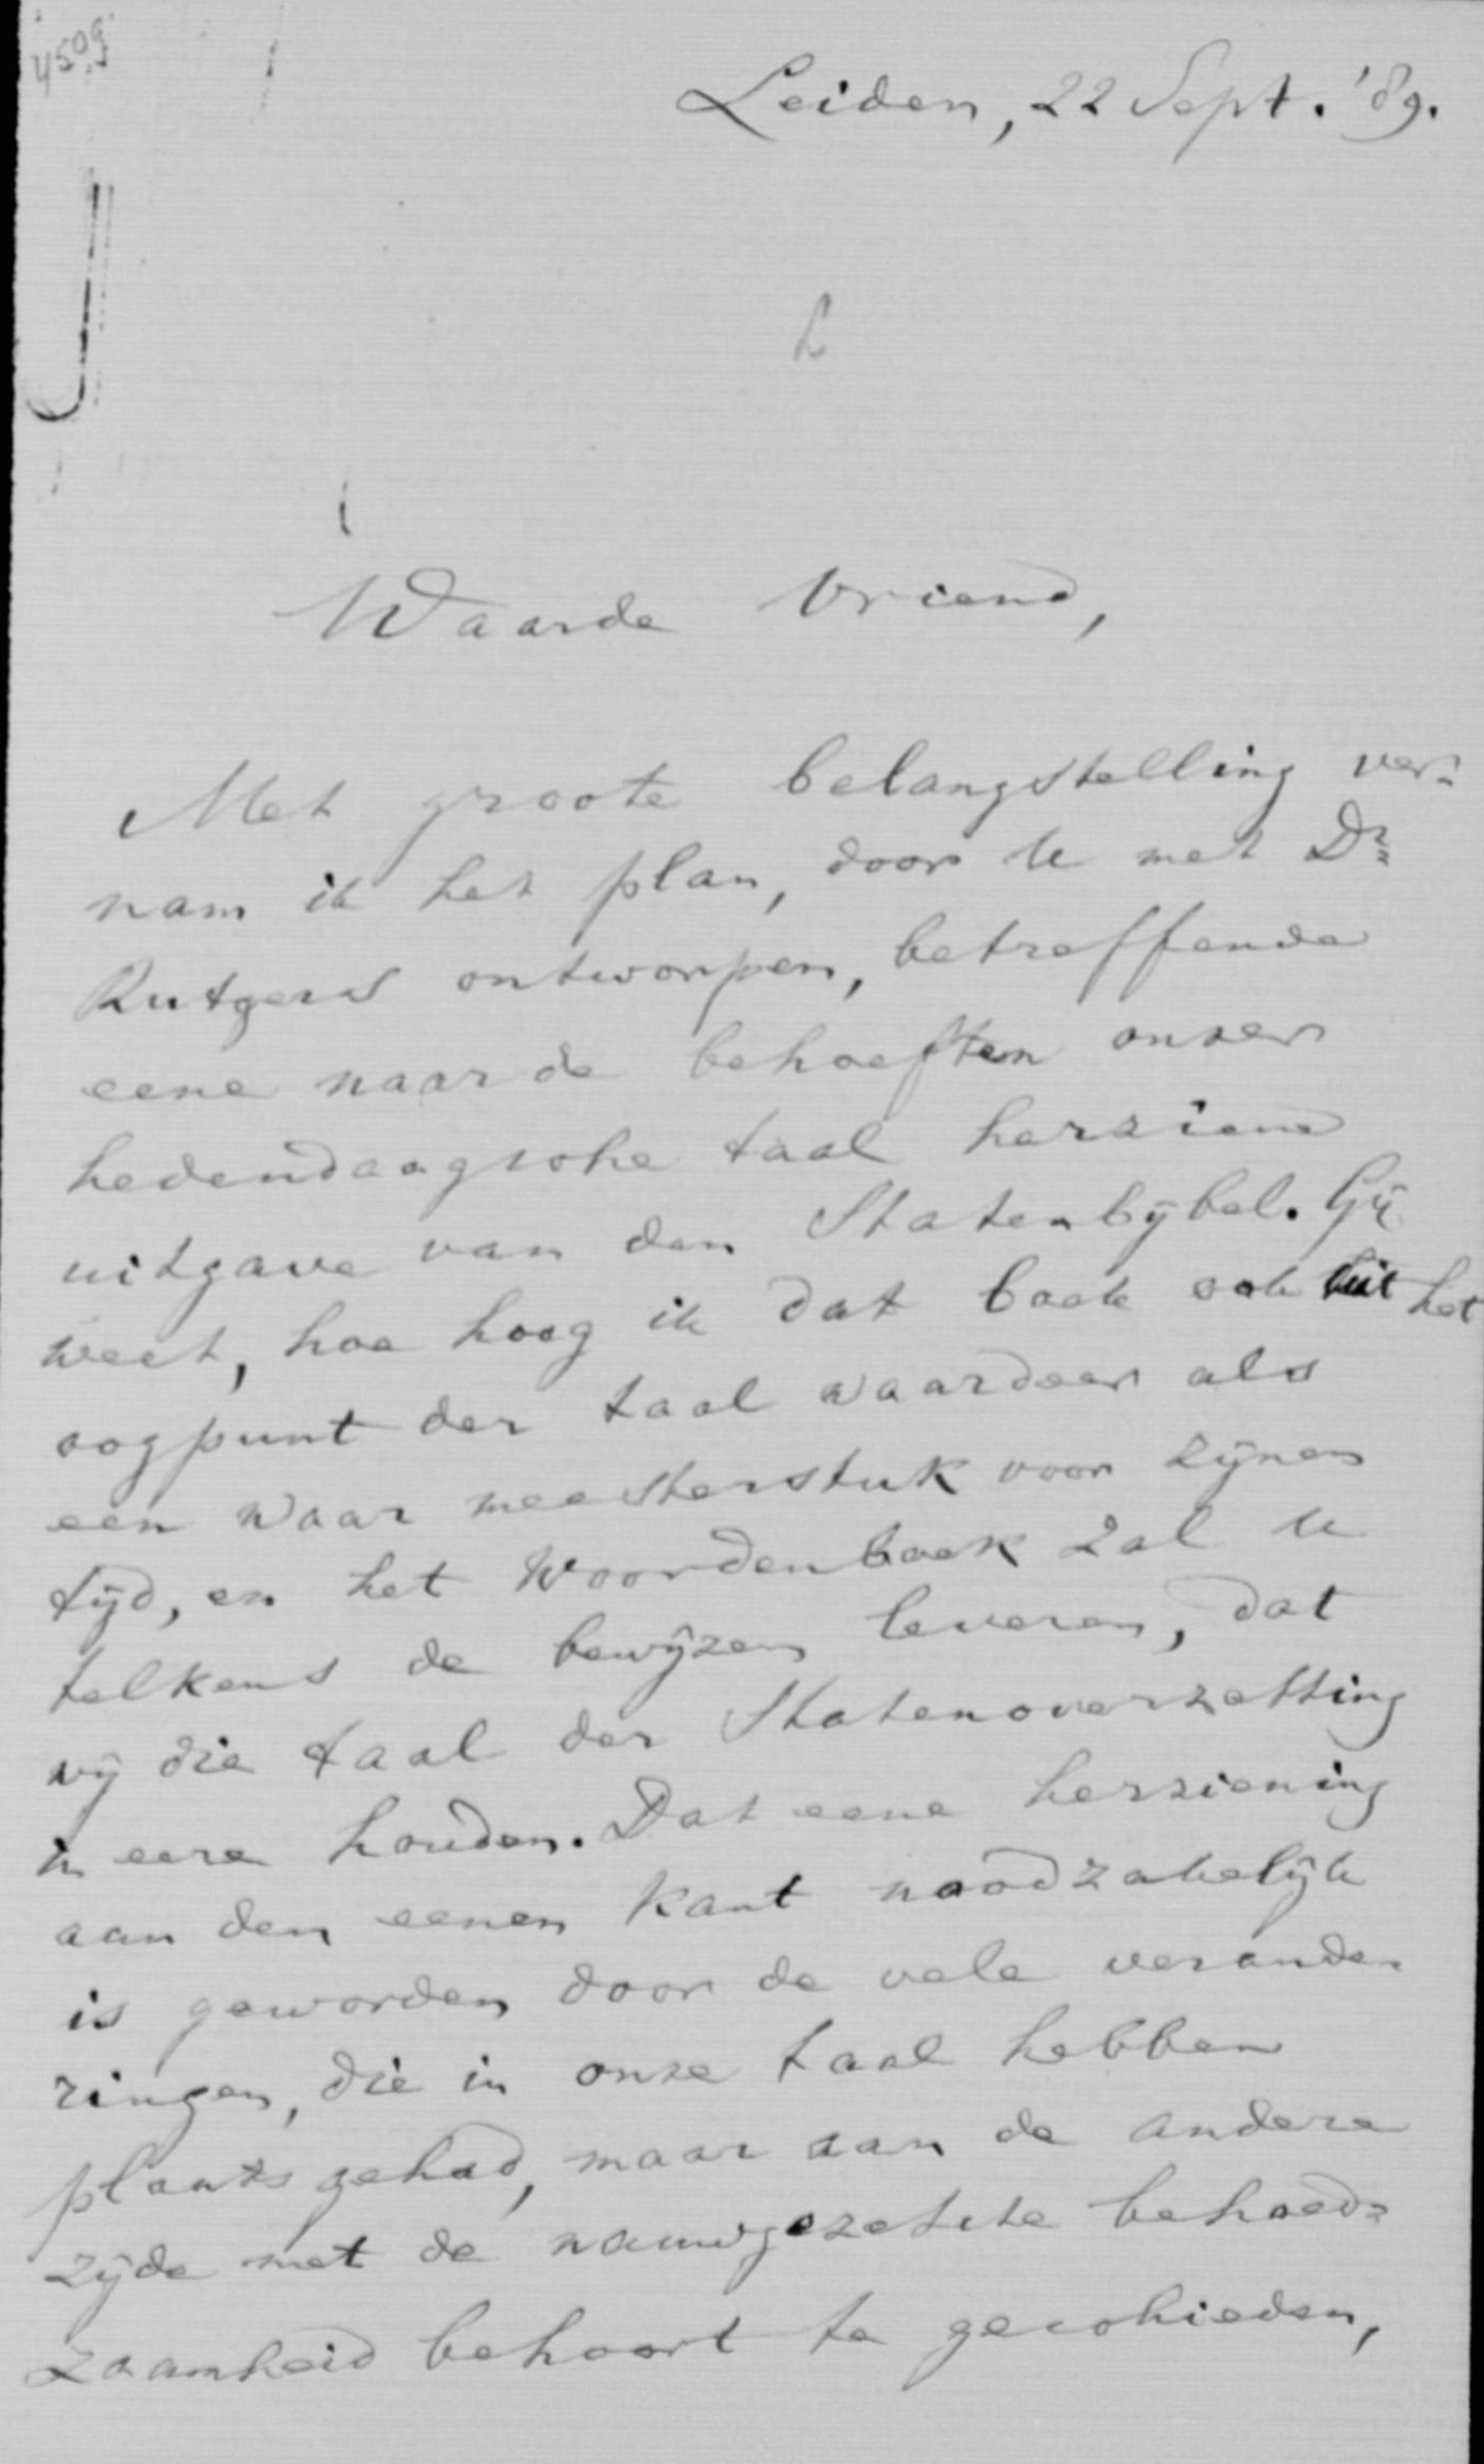 4509
Leiden, 22 Sept. '89.
Waarde Vriend,
Met groote belangstelling ver=
nam ik het plan, door U met Dr.
Rutgers ontworpen, betreffende
eene naar de behoeften onzer
hedendaagsche taal herziene
uitgave van den Statenbijbel. Gij
weet, hoe hoog ik dat boek ook uit het
oogpunt der taal waardeer als
een waar meesterstuk voor zijnen
tijd, en het Woordenboek zal U
telkens de bewijzen leveren, dat
wij die taal der Statenoverzetting
in eere houden. Dat eene herziening
aan den eenen kant noodzakelijk
is geworden door de vele verande-
ringen, die in onze taal hebben
plaats gehad, maar aan de andere
zijde met de nauwgezetste behoed=
zaamheid behoort te geschieden,